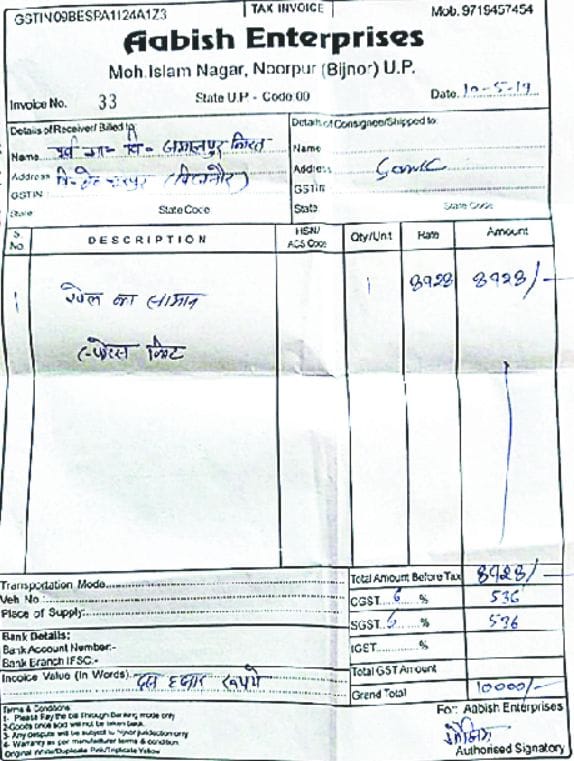 GSTIN09BESPA1124A1Z3
TAX INVOICE
Mob. 9719457454
Aabish Enterprises
Moh.Islam Nagar, Noorpur (Bijnor) U.P.
Invoice No. 33
State U.P. - Code 09
Date. 10-5-19
Details of Receiver/ Billed to
Name जमालपुर
Address (बिजनौर)
GSTIN
State
State Code
Details of Consignee/Shipped to:
Name
Address Same
GSTIN
State
State Code
S. No.
DESCRIPTION
HSN/ ACS Code
Qty/Unt
Rate
Amount
1 खेल का सामान 1 8928 8928/-
स्पोर्टस किट
Transportation Mode
Veh No :
Place of Supply:
Total Amount Before Tax 8928/-
CGST 6 % 536
SGST 6 % 536
IGST %
Bank Details:
Bank Account Number:-
Bank Branch IFSC.-
Total GST Amount
Invoice Value (In Words) दस हजार रुपये
Grand Total 10000/-
Terms & Conditions
1- Please Pay the bill Through Banking mode only
2-Goods once sold will not be taken back.
3- Any despute will be subject to Noor jurisdiction only
4- Warranty as per manufacturer terms & condition.
Original White/Duplicate Pink/Triplicate Yellow
For: Aabish Enterprises
Authorised Signatory